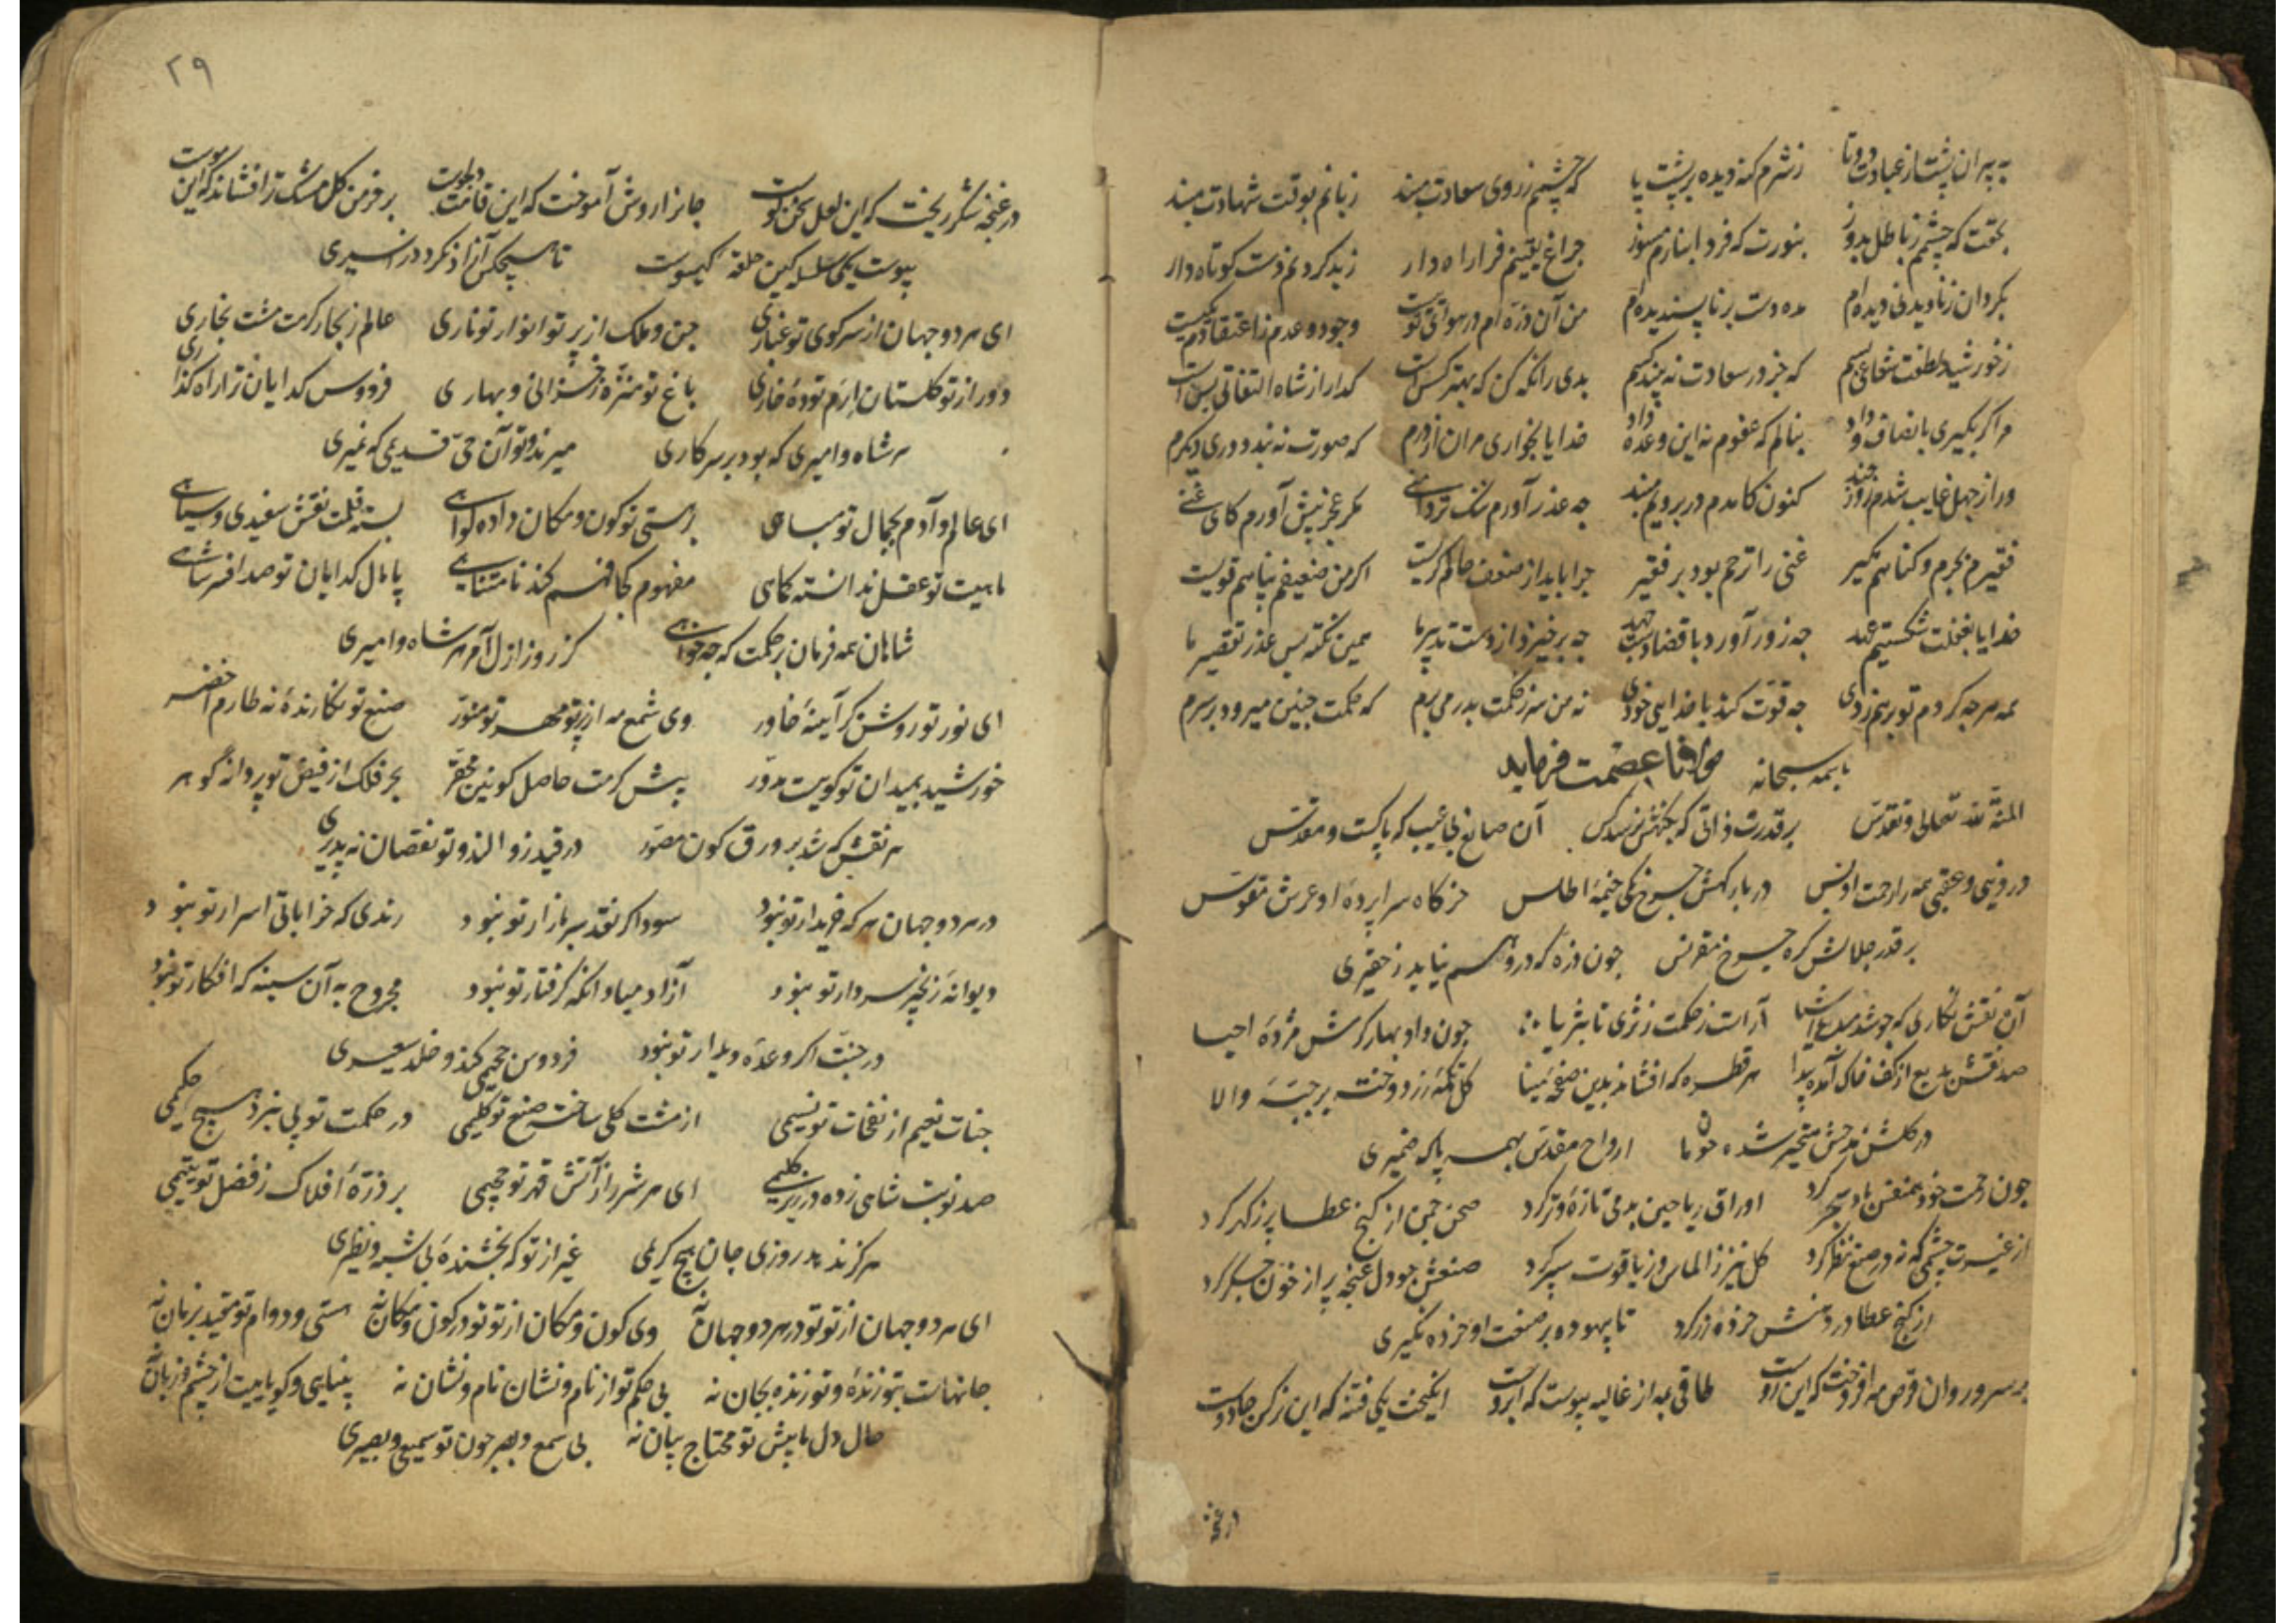 به پیران پشت از عبادت دوتا ز شرم گنه دیده بر پشت پا که چشمم ز روی سعادت مبند زبانم بوقت شهادت مبند
بحقت که چشمم ز باطل بدوز بنورت که فردا بنارم مسوز چراغ یقینم فرا راه دار ز بد کردنم دست کوتاه دار
بگردان ز نادیدنی دیده‌ام مده دست بر ناپسندیده‌ام من آن ذره‌ام در هوای تو نیست وجود و عدم ز اعتقادم یکیست
ز خورشید لطفت شعاعی بسم که جز در سعادت نه بیند کسم بدی را نگه کن که بهتر کس است گدا را ز شاه التفاتی بس است
مرا گر بگیری بانصاف و داد بنالم که عفوم نه این وعده داد خدایا بخواری مران از درم که صورت نه بندد دری دیگرم
ور از جهل غایب شدم روز چند کنون کامدم در برویم مبند چه عذر آورم ننگ تردامنی مگر عجز پیش آورم کای غنی
فقیرم بجرم و گناهم مگیر غنی را ترحم بود بر فقیر چرا باید از ضعف حالم گریست اگر من ضعیفم پناهم قویست
خدایا بغفلت شکستیم عهد چه زور آورد با قضا دست جهد چه برخیزد از دست تدبیر ما همین نکته بس عذر تقصیر ما
همه هر چه کردم تو برهم زدی چه قوت کند با خدایی خودی نه من سر ز حکمت بدر می برم که حکمت چنین میرود بر سرم
باسمه سبحانه مولانا عصمت فرماید
المنة لله تعالی و تقدس بر قدرت ذاتی که بکنهش نرسد کس آن صانع بی عیب که پاکست و مقدس
در دنیی و عقبی همه را رحمت او بس در بارگهش چرخ یکی خیمه اطلس خرگاه سراپرده او عرش مقوس
بر قدر جلالش کره چرخ مقرنس چون ذره که در وهم نیاید ز حقیری
آن نقش نگاری که چو شد مبدع اشیا آراست ز حکمت ز ثری تا بثریا چون داد بهار کرمش مژده احیا
صد نقش بدیع از کف خاک آمده پیدا هر قطره که افشاند بدین صفحه مینا گل تکمه زر دوخت بر جبه والا
در گلشن مدحش متحیر شده چون ما ارواح مقدس بهمه پاک ضمیری
چون رحمت خود همنفس باد سحر کرد اوراق ریاحین بدمی تازه و تر کرد صحن چمن از گنج عطا پر ز گهر کرد
از غیرت چشمی که نه در صنع نظر کرد گل نیزه ز الماس و ز یاقوت سپر کرد صنعش چو دل غنچه پر از خون جگر کرد
از گنج عطا در دهنش خرده زر کرد تا بیهوده بر صنعت او خرده نگیری
بر سرو روان قرص مه افروخت که این روست طاقی مه از غالیه پیوست که ابروست انگیخت یکی فتنه که این نرگس جادوست
در غنچه
۲۹
در غنچه شکر ریخت که این لعل سخن گوست جانرا روش آموخت که این قامت دلجوست بر خرمن گل مشک تر افشاند که این موست
پیوست یکی سلسله کین حلقه گیسوست تا هیچکس آزاد نگردد ز اسیری
ای هر دو جهان از سر کوی تو غباری جن و ملک از پرتو انوار تو ناری عالم ز بحار کرمت مشت بخاری
دور از تو گلستان ارم توده خاری باغ تو منزه ز خزانی و بهاری فردوس گدایان ترا راه گذاری
هر شاه و امیری که بود بر سر کاری میرند و تو آن حی قدیمی که نمیری
ای عالم و آدم بجمال تو مباهی بر هستی تو کون و مکان داده گواهی بسته قلمت نقش سفیدی و سیاهی
ماهیت تو عقل ندانسته کماهی مفهوم کجا فهم کند نامتناهی پامال گدایان تو صد افسر شاهی
شاهان همه فرمان بر حکمت که چه خواهی کز روز ازل آمر هر شاه و امیری
ای نور تو روشن گر آیینه خاور وی شمع مه از پرتو مهر تو منور صنع تو نگارنده نه طارم اخضر
خورشید بمیدان تو گوییست مدور پیش کرمت حاصل کونین محقر بحر فلک از فیض تو پر دانه گوهر
هر نقش که شد بر ورق کون مصور در قید زوالند و تو نقصان نه پذیری
در هر دو جهان هر که خریدار تو نبود سودا گر نقد سر بازار تو نبود رندی که خراباتی اسرار تو نبود
دیوانه زنجیر سر دار تو نبود آزاد مباد آنکه گرفتار تو نبود مجروح به آن سینه که افکار تو نبود
در جنت اگر وعده دیدار تو نبود فردوس جحیمی کند و خلد سعیری
جنات نعیم از نفحات تو نسیمی از مشت گلی ساخت صنع تو کلیمی در حکمت تو پی نبرد هیچ حکیمی
صد نوبت شاهی زده در زیر گلیمی ای هر شرر از آتش قهر تو جحیمی بر ذره افلاک ز فضل تو یتیمی
هرگز ندهد روزی جان هیچ کریمی غیر از تو که بخشنده بی شبه و نظیری
ای هر دو جهان از تو تو در هر دو جهان نه وی کون و مکان از تو تو در کون و مکان نه هستی و دوام تو مقید بزمان نه
جانهاست بتو زنده و تو زنده بجان نه بی حکم تو از نام و نشان نام و نشان نه بینایی و گویاییت از چشم و زبان نه
حال دل ما پیش تو محتاج بیان نه بی سمع و بصر چون تو سمیعی و بصیری